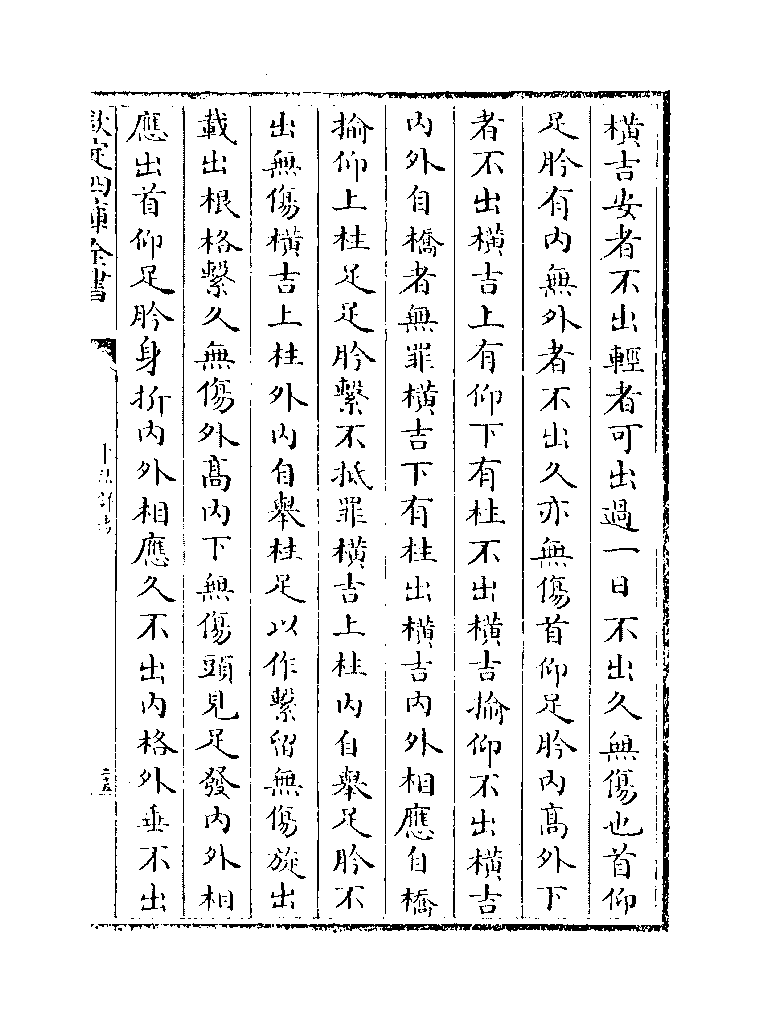 橫吉安者不出輕者可出過一日不出久無傷也首仰
足肣有内無外者不出久亦無傷首仰足肣内髙外下
者不出橫吉上有仰下有柱不出橫吉揄仰不出橫吉
内外自橋者無罪橫吉下有柱出橫吉内外相應自橋
揄仰上柱足足肣繫不抵罪橫吉上柱内自舉足肣不
出無傷橫吉上柱外内自舉柱足以作繫留無傷旋出
載出根格繫久無傷外髙内下無傷頭見足發内外相
應出首仰足肣身折内外相應久不出内格外垂不出
欽定四庫全書
二十五